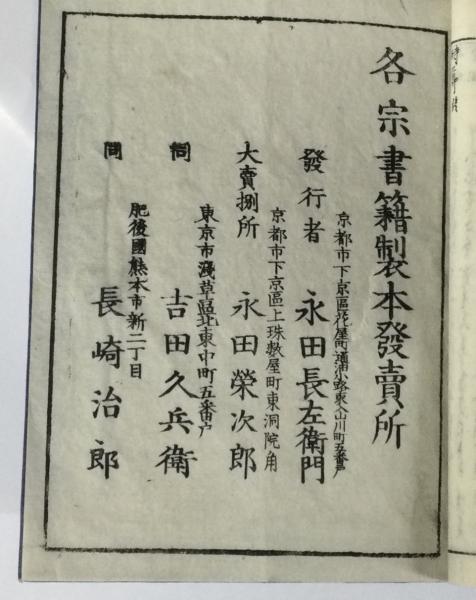 各宗書籍製本發賣所
京都市下京區花屋町通油小路東入山川町五番戸
發行者 永田長左衛門
京都市下京區上珠數屋町東洞院角
大賣捌所 永田榮次郎
東京市淺草區北東中町五番戸
同 吉田久兵衛
肥後國熊本市新二丁目
同 長崎治郎